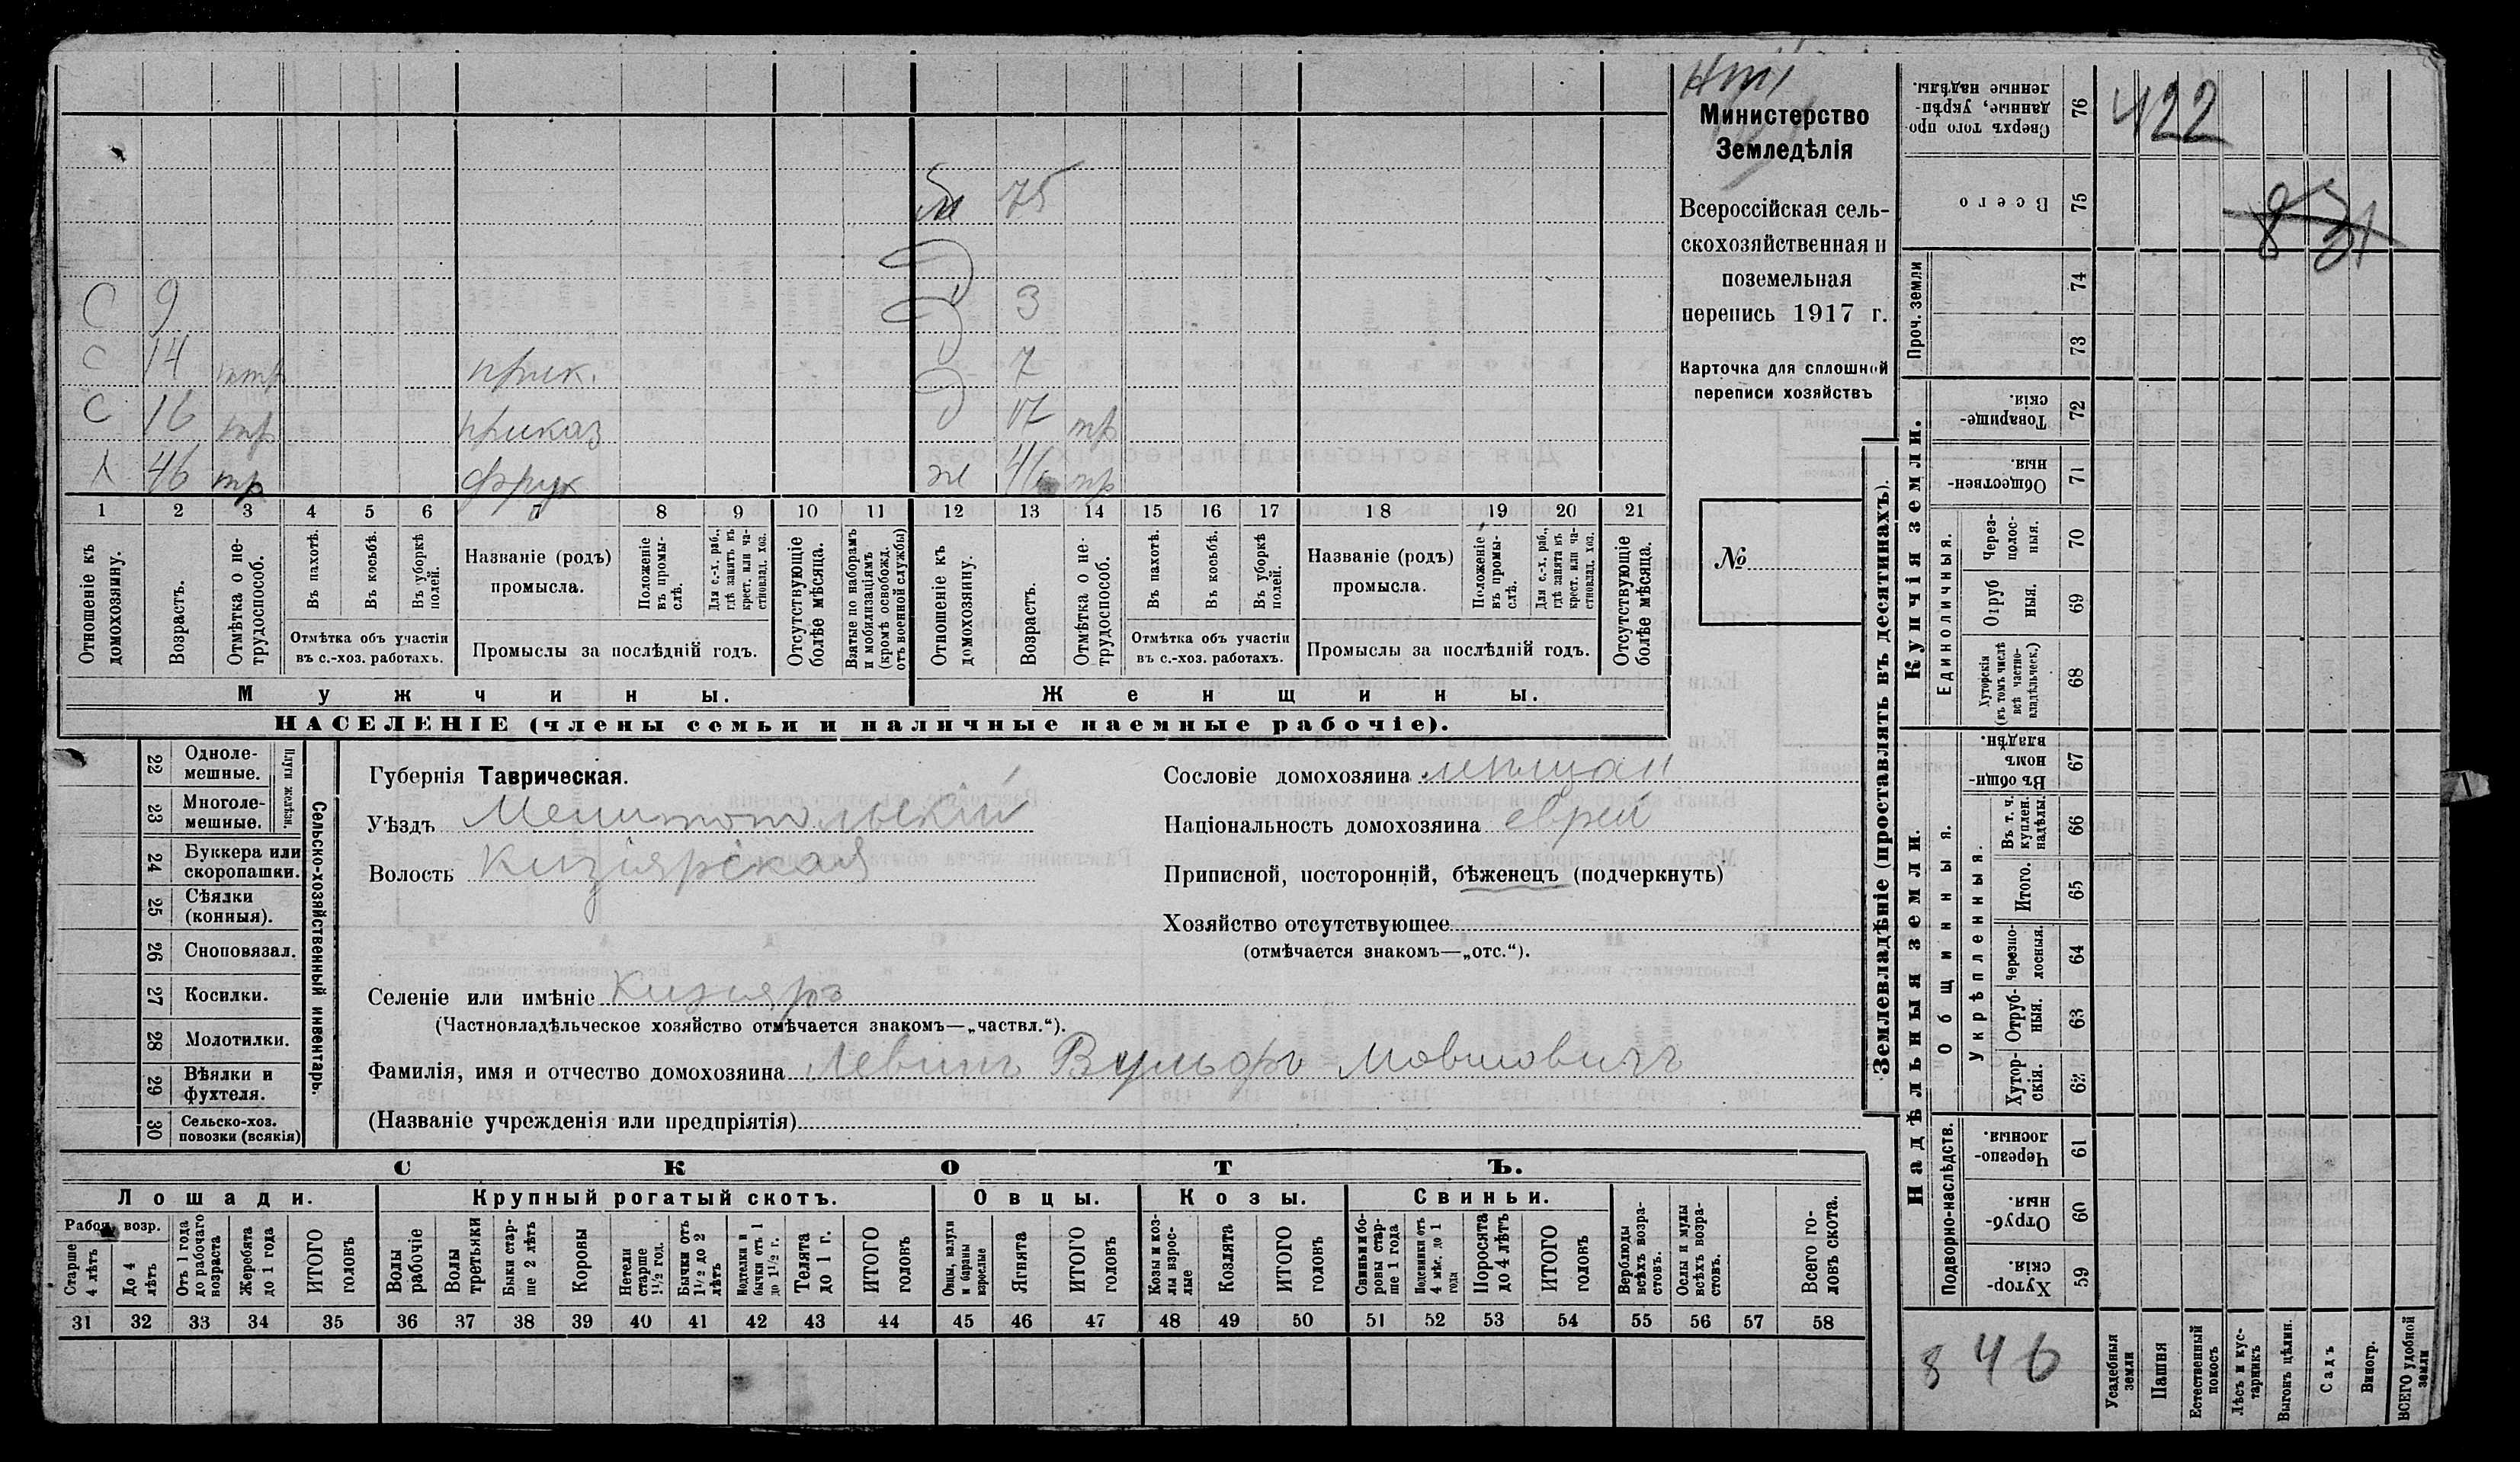 Министерство
Земледѣлія
Всероссійская сель-
скохозяйственная и
поземельная
перепись 1917 г.
Карточка для сплошной
переписи хозяйствъ
№
422
831
846
м 75
С 9
3
С 14 прик.
7
С 16 приказ
17 тр
46 тр
ж 46 тр
1 2 3 4 5 6 7 8 9 10 11 12 13 14 15 16 17 18 19 20 21
Отношеніе къ домохозяину.
Возрастъ.
Отмѣтка о не-трудоспособ.
Въ пахотѣ.
Въ косьбѣ.
Въ уборкѣ полей.
Отмѣтка объ участіи
въ с.-хоз. работахъ.
Названіе (родъ)
промысла.
Положеніе въ промы-слѣ.
Для с.-х. раб., гдѣ занятъ въ крест. или ча-стновлад. хоз.
Промыслы за послѣдній годъ.
Отсутствующіе болѣе мѣсяца.
Взятые по наборамъ и мобилизаціямъ (кромѣ освобожд. отъ военной службы)
Отношеніе къ домохозяину.
Возрастъ.
Отмѣтка о не-трудоспособ.
Въ пахотѣ.
Въ косьбѣ.
Въ уборкѣ полей.
Отмѣтка объ участіи
въ с.-хоз. работахъ.
Названіе (родъ)
промысла.
Положеніе въ промы-слѣ.
Для с.-х. раб., гдѣ занятъ въ крест. или ча-стновлад. хоз.
Промыслы за послѣдній годъ.
Отсутствующіе болѣе мѣсяца.
Мужчины. Женщины.
НАСЕЛЕНІЕ (члены семьи и наличные наемные рабочіе).
Сельско-хозяйственный инвентарь.
Плуги желѣзн.
22 Одноле-мешные.
23 Многоле-мешные.
24 Буккера или скоропашки.
25 Сѣялки (конныя).
26 Сноповязал.
27 Косилки.
28 Молотилки.
29 Вѣялки и фухтеля.
30 Сельско-хоз. повозки (всякія)
Губернія Таврическая.
Уѣздъ Мелитопольскій
Волость Кизіярская
Сословіе домохозяина мѣщан
Національность домохозяина еврей
Приписной, посторонній, бѣженецъ (подчеркнуть)
Хозяйство отсутствующее
(отмѣчается знакомъ—„отс.“).
Селеніе или имѣніе Кизияръ
(Частновладѣльческое хозяйство отмѣчается знакомъ—„частвл.“).
Фамилія, имя и отчество домохозяина Левинъ Вульфъ Мовшовичъ
(Названіе учрежденія или предпріятія)
СКОТЪ.
Лошади. Крупный рогатый скотъ. Овцы. Козы. Свиньи.
Рабоч. возр.
Старше 4 лѣтъ
До 4 лѣтъ
Отъ 1 года до рабочаго возраста
Жеребята до 1 года
ИТОГО головъ
Волы рабочіе
Волы третьяки
Быки стар-ше 2 лѣтъ
Коровы
Нетели старше 1½ год.
Бычки отъ 1½ до 2 лѣтъ
Подтелки и бычки отъ 1 до 1½ г.
Телята до 1 г.
ИТОГО головъ
Овцы, валухи и бараны взрослые
Ягнята
ИТОГО головъ
Козы и коз-лы взрос-лые
Козлята
ИТОГО головъ
Свиньи и бо-ровы стар-ше 1 года
Подсвинки отъ 4 мѣс. до 1 года
Поросята до 4 лѣтъ
ИТОГО головъ
Верблюды всѣхъ возра-стовъ.
Ослы и мулы всѣхъ возра-стовъ.
Всего го-ловъ скота.
31 32 33 34 35 36 37 38 39 40 41 42 43 44 45 46 47 48 49 50 51 52 53 54 55 56 57 58
Землевладѣніе (проставлять въ десятинахъ).
Сверхъ того про-данные, укрѣп-ленные надѣлы. 76
Всего 75
Проч. земли
74
73
Купчія земли.
Товарище-скія. 72
Обществен-ныя. 71
Единоличныя.
Через-полос-ныя. 70
Отруб ныя. 69
Хуторскія (въ томъ числѣ всѣ частно-владѣльческ.) 68
Надѣльныя земли.
Общинныя.
Въ общин-номъ владѣн. 67
Укрѣпленныя.
Въ т. ч. куплен. надѣлы. 66
Итого. 65
Черезпо-лосныя. 64
Отруб-ныя. 63
Хутор-скія. 62
Подворно-наслѣдств.
Черезпо-лосныя. 61
Отруб-ныя. 60
Хутор-скія. 59
Усадебныя земли
Пашня
Естественный покосъ
Лѣсъ и кус-тарникъ
Выгонъ цѣлин.
Садъ
Виногр.
ВСЕГО удобной земли